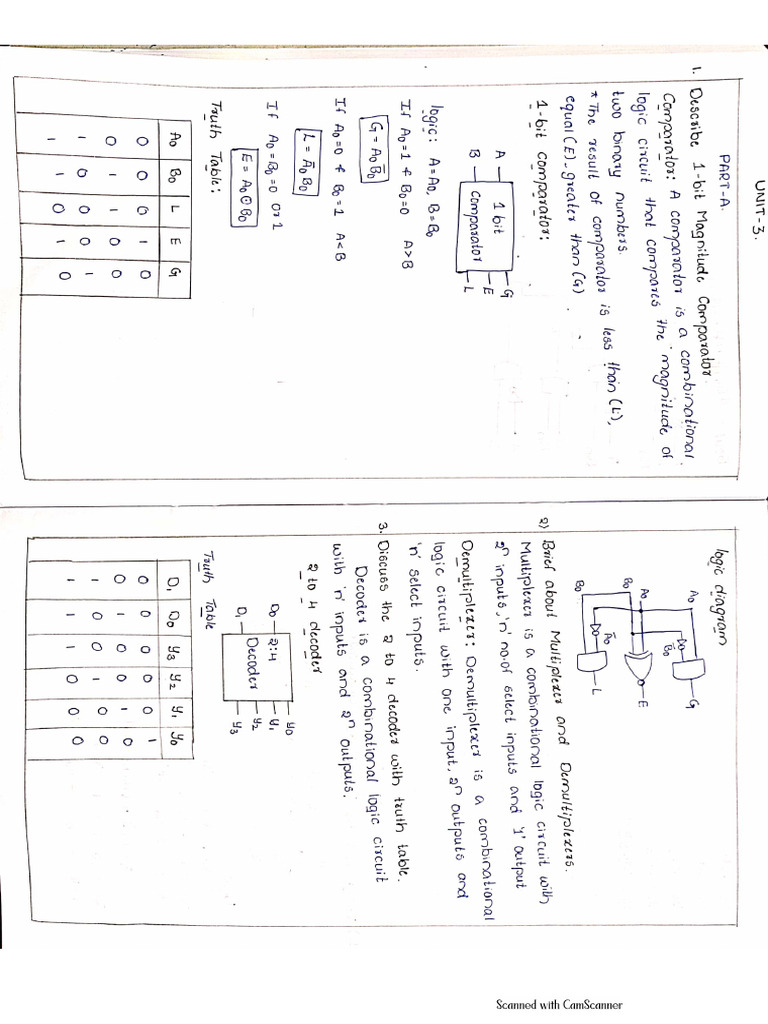 UNIT-3.
PART-A.
1. Describe 1-bit Magnitude Comparator
Comparator: A comparator is a combinational
logic circuit that compares the magnitude of
two binary numbers.
* The result of comparator is less than (L),
equal (E). greater than (G)
1-bit comparator:
A
B
1 bit
comparator
G
E
L
logic: A=A0, B=B0
If A0=1 & B0=0 A>B
G=A0B̅0
If A0=0 & B0=1 A<B
L=A̅0B0
If A0=B0=0 or 1
E=A0⊙B0
Truth Table:
A0 B0 L E G
0 0 0 1 0
0 1 1 0 0
1 0 0 0 1
1 1 0 1 0
logic diagram
A0
B̅0
G
A0
B0
E
A̅0
B0
L
2) Brief about Multiplexer and Demultiplexers.
Multiplexer is a combinational logic circuit with
2ⁿ inputs, 'n' no.of select inputs and '1' output
Demultiplexer: Demultiplexer is a combinational
logic circuit with one input, 2ⁿ outputs and
'n' select inputs.
3. Discuss the 2 to 4 decoder with truth table.
Decoder is a combinational logic circuit
with 'n' inputs and 2ⁿ outputs.
2 to 4 decoder
D0
D1
2:4
Decoder
y0
y1
y2
y3
Truth Table
D1 D0 y3 y2 y1 y0
0 0 0 0 0 1
0 1 0 0 1 0
1 0 0 1 0 0
1 1 1 0 0 0
Scanned with CamScanner